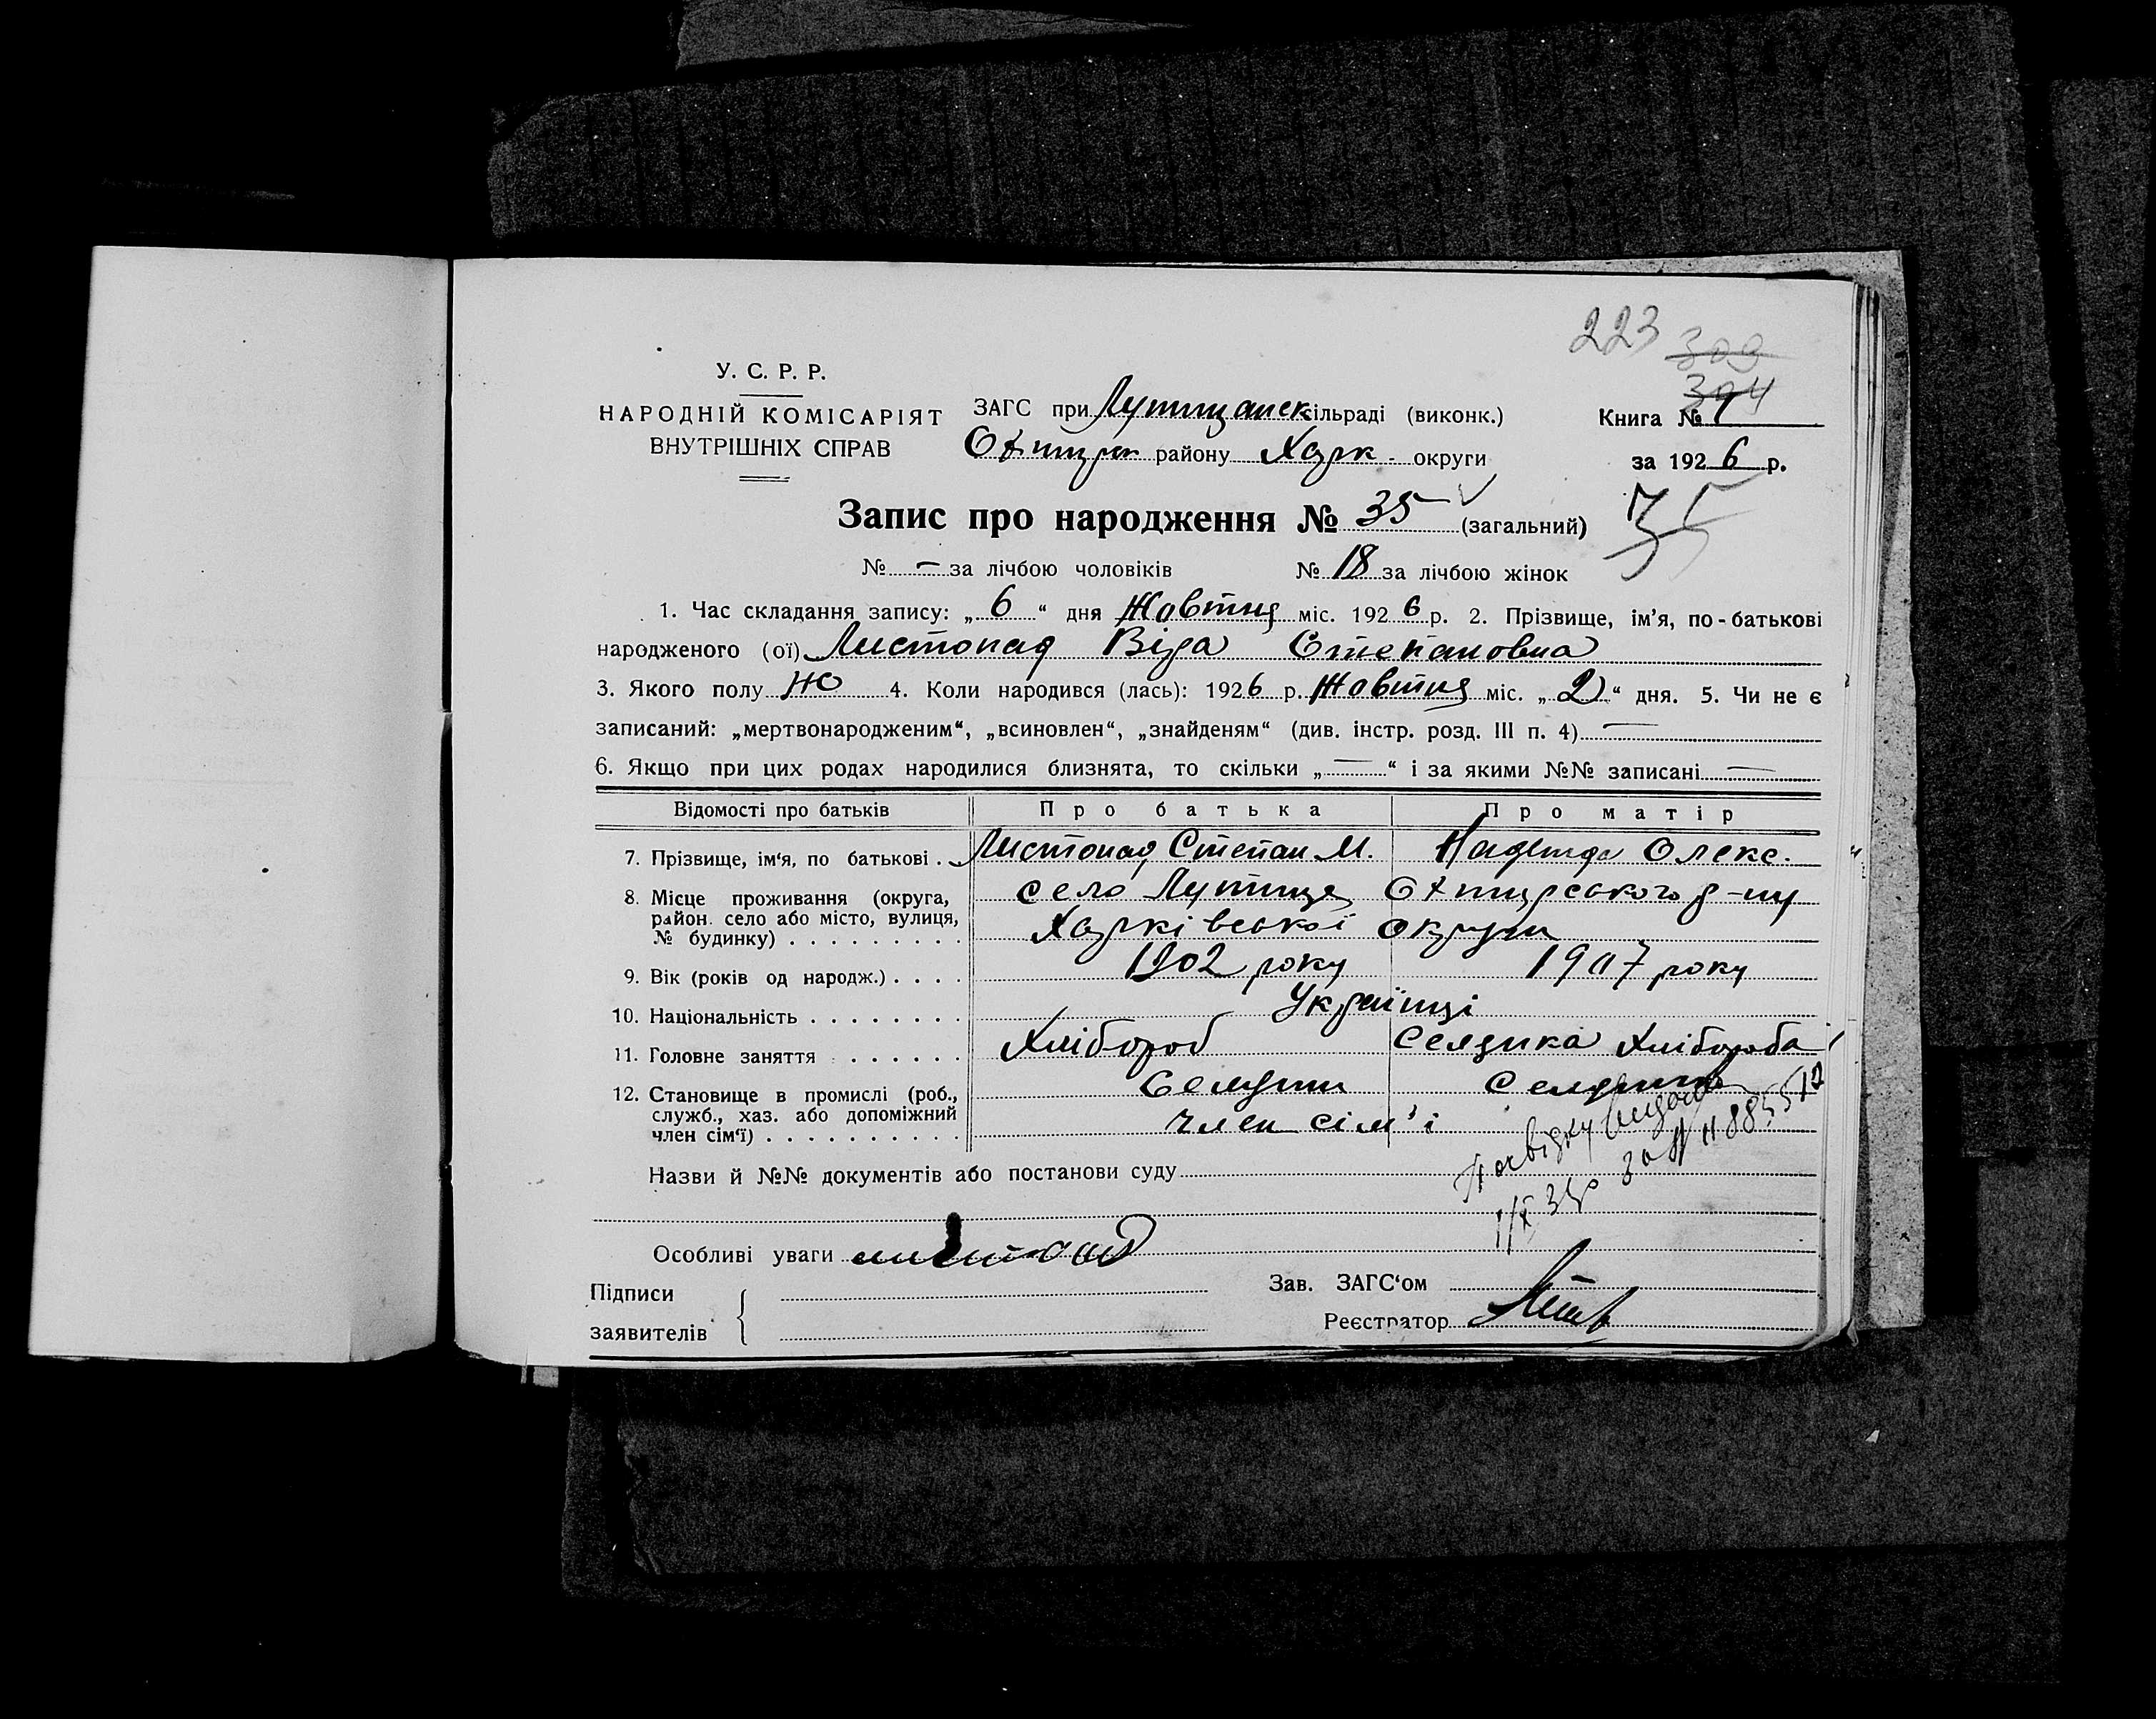 223
309
304
У. С. Р. Р.
НАРОДНІЙ КОМІСАРІЯТ
ВНУТРІШНІХ СПРАВ
ЗАГС при Лутищанск сільраді (виконк.)
Охтирск району Харк. округи
Книга № 1
за 1926 р.
Запис про народження № 35 (загальний)
35
№ — за лічбою чоловіків № 18 за лічбою жінок
1. Час складання запису: „6“ дня Жовтня міс. 1926 р. 2. Прізвище, ім'я, по-батькові
народженого (ої) Листопад Віра Степановна
3. Якого полу Жо 4. Коли народився (лась): 1926 р. Жовтня міс. „2“ дня. 5. Чи не є
записаний: „мертвонародженим“, „всиновлен“, „знайденям“ (див. інстр. розд. III п. 4) —
6. Якщо при цих родах народилися близнята, то скільки „—“ і за якими №№ записані —
Відомості про батьків Про батька Про матір
7. Прізвище, ім'я, по батькові . Листопад Степан М. Надежда Олекс.
8. Місце проживання (округа, село Лутище Охтирського р-ну
район. село або місто, вулиця, Харківської округи
№ будинку) . . . . . . . . .
9. Вік (років од народж.) . . . . 1902 року 1907 року
10. Національність . . . . . . . . Українці
11. Головне заняття . . . . . . Хлібороб Селянка Хлібороба
12. Становище в промислі (роб., Селянин Селянка
служб., хаз. або допоміжний член сім'ї
член сім'ї) . . . . . . . . . .
Назви й №№ документів або постанови суду
Довідку видано
за № 885512
Особливі уваги листопад
Підписи
заявителів
Зав. ЗАГС'ом
Реєстратор